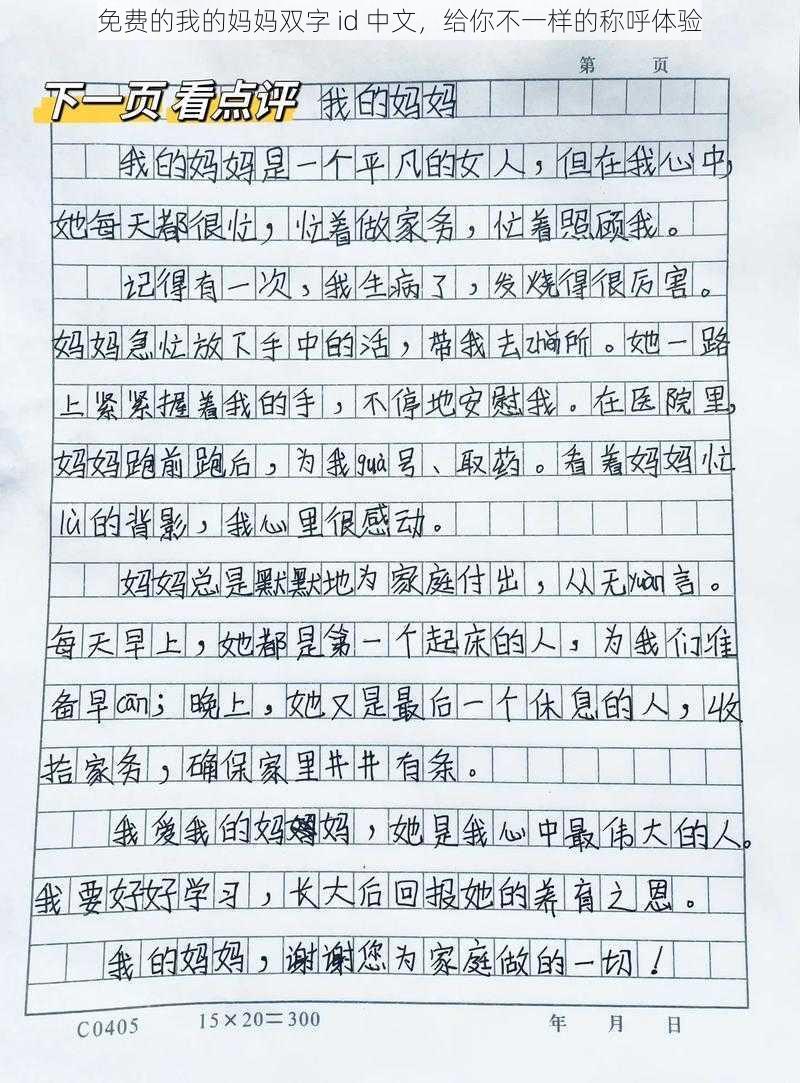 免费的我的妈妈双字 id 中文，给你不一样的称呼体验
第 页
下一页 看点评
我的妈妈
我的妈妈是一个平凡的女人，但在我心中，
她每天都很忙，忙着做家务，忙着照顾我。
记得有一次，我生病了，发烧得很厉害。
妈妈急忙放下手中的活，带我去zhěn所。她一路
上紧紧握着我的手，不停地安慰我。在医院里，
妈妈跑前跑后，为我guà号、取药。看着妈妈忙
lù的背影，我心里很感动。
妈妈总是默默地为家庭付出，从无yuàn言。
每天早上，她都是第一个起床的人，为我们准
备早cān；晚上，她又是最后一个休息的人，收
拾家务，确保家里井井有条。
我爱我的妈妈，她是我心中最伟大的人。
我要好好学习，长大后回报她的养育之恩。
我的妈妈，谢谢您为家庭做的一切！
C0405 15×20=300 年 月 日